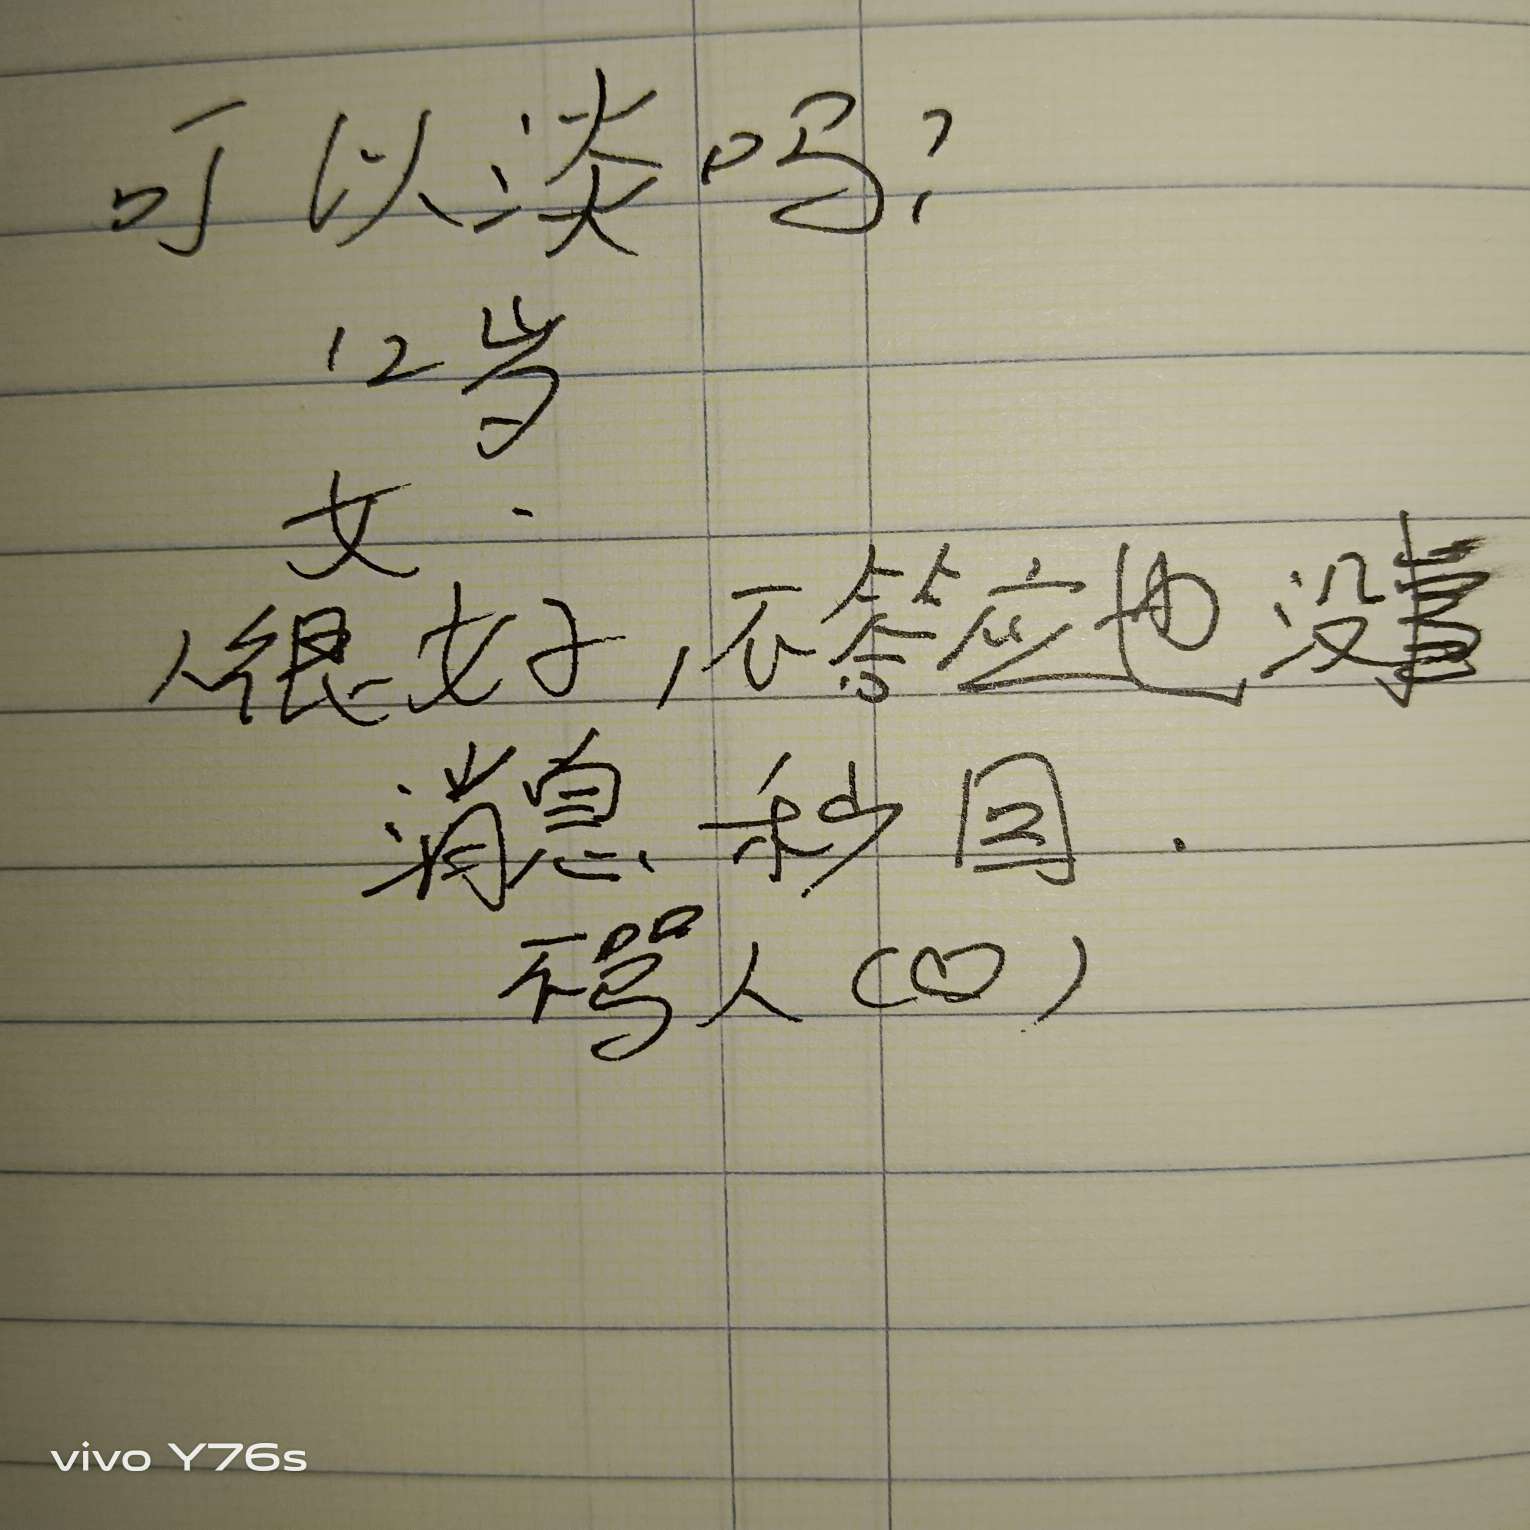 可以淡吗?
12岁
女.
人很好,不答应也没事
消息秒回.
不骂人(♡)
vivo Y76s